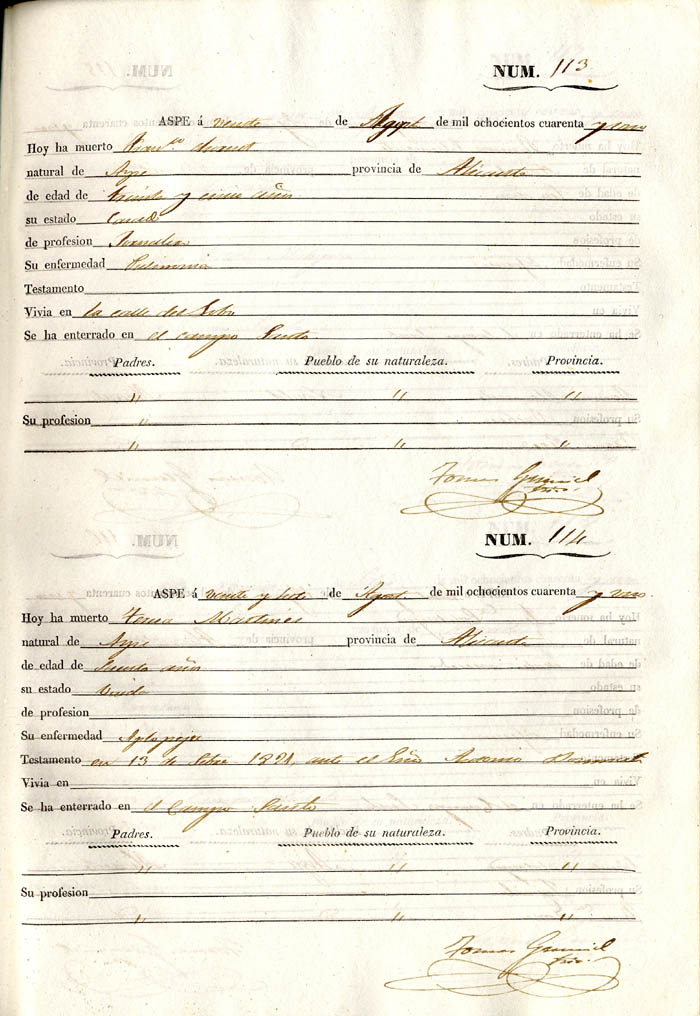 NUM. 113
ASPE á veinte de Agost de mil ochocientos cuarenta y uno
Hoy ha muerto Fran.co
natural de Aspe provincia de Alicante
de edad de treinta y cinco años
su estado Casado
de profesion Jornalero
Su enfermedad Pulmonia
Testamento
Vivia en la calle del Lobo
Se ha enterrado en el campo Santo
Padres. Pueblo de su naturaleza. Provincia.
" " "
Su profesion "
" " "
Tomas
NUM. 114
ASPE á veinte y siete de Agost de mil ochocientos cuarenta y uno.
Hoy ha muerto Teresa Martinez
natural de Aspe provincia de Alicante
de edad de años
su estado Viuda
de profesion
Su enfermedad Aplopejia
Testamento en 13 de Setbre 1821, ante el Antonio
Vivia en
Se ha enterrado en el Campo Santo
Padres. Pueblo de su naturaleza. Provincia.
" " "
Su profesion
" " "
Tomas